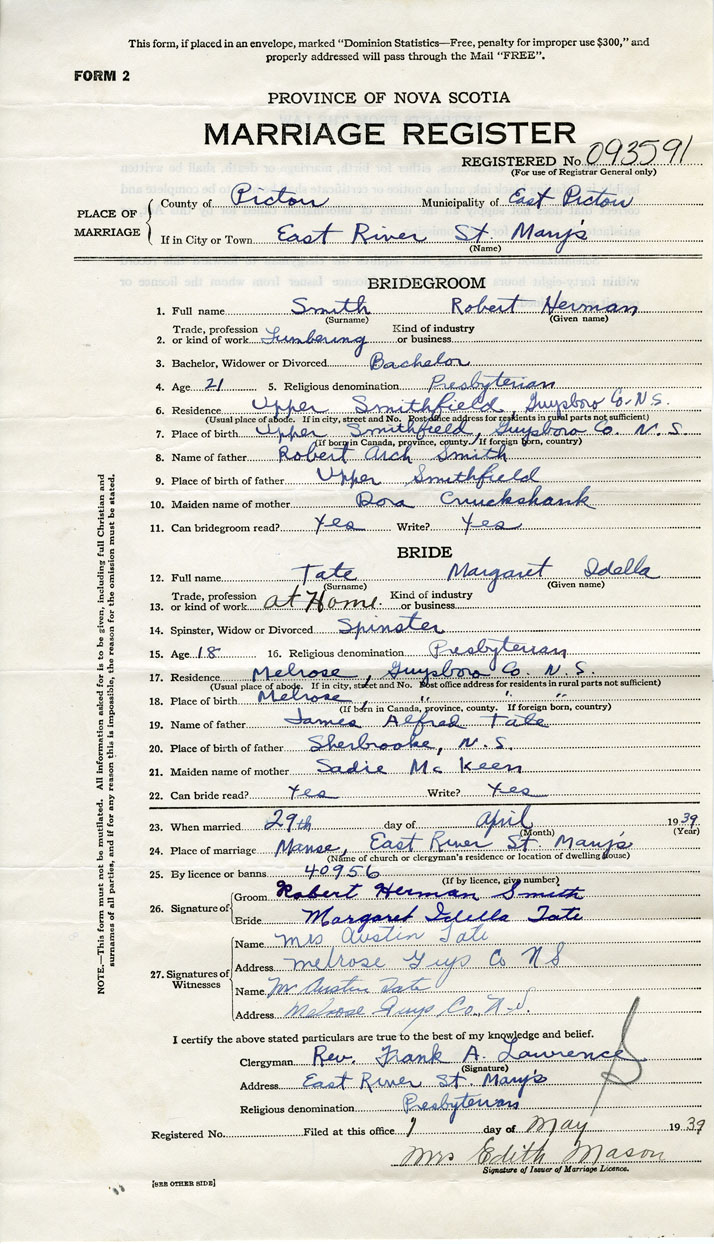 This form, if placed in an envelope, marked "Dominion Statistics—Free, penalty for improper use $300," and
properly addressed will pass through the Mail "FREE".
FORM 2
PROVINCE OF NOVA SCOTIA
MARRIAGE REGISTER
REGISTERED No. 093591
(For use of Registrar General only)
PLACE OF MARRIAGE
County of Pictou Municipality of East Pictou
If in City or Town East River St Mary's
(Name)
BRIDEGROOM
1. Full name Smith Robert Herman
(Surname) (Given name)
2. Trade, profession or kind of work Lumbering Kind of industry or business
3. Bachelor, Widower or Divorced Bachelor
4. Age 21 5. Religious denomination Presbyterian
6. Residence Upper Smithfield, Guysboro Co. N.S.
(Usual place of abode. If in city, street and No. Post office address for residents in rural parts not sufficient)
7. Place of birth Upper Smithfield, Guysboro Co. N.S
(If born in Canada, province, county. If foreign born, country)
8. Name of father Robert Arch Smith
9. Place of birth of father Upper Smithfield
10. Maiden name of mother Dora Cruickshank
11. Can bridegroom read? Yes Write? Yes
BRIDE
12. Full name Tate Margaret Idella
(Surname) (Given name)
13. Trade, profession or kind of work at Home. Kind of industry or business
14. Spinster, Widow or Divorced Spinster
15. Age 18 16. Religious denomination Presbyterian
17. Residence Melrose, Guysboro Co. N.S.
(Usual place of abode. If in city, street and No. Post office address for residents in rural parts not sufficient)
18. Place of birth Melrose, " " "
(If born in Canada, province, county. If foreign born, country)
19. Name of father James Alfred Tate
20. Place of birth of father Sherbrooke, N.S.
21. Maiden name of mother Sadie McKeen
22. Can bride read? Yes Write? Yes
23. When married 29th day of April 1939
(Month) (Year)
24. Place of marriage Manse, East River St Mary's
(Name of church or clergyman's residence or location of dwelling house)
25. By licence or banns 40956
(If by licence, give number)
26. Signature of
Groom Robert Herman Smith
Bride Margaret Idella Tate
27. Signatures of Witnesses
Name Mrs Austin Tate
Address Melrose Guys Co N S
Name Mr Austin Tate
Address Melrose Guys Co. N.S.
I certify the above stated particulars are true to the best of my knowledge and belief.
Clergyman Rev. Frank A. Lawrence
(Signature)
Address East River St. Mary's
Religious denomination Presbyterian
Registered No. Filed at this office 1 day of May 1939
Mrs Edith Mason
Signature of Issuer of Marriage Licence.
[SEE OTHER SIDE]
NOTE.—This form must not be mutilated. All information asked for is to be given, including full Christian and
surnames of all parties, and if for any reason this is impossible, the reason for the omission must be stated.